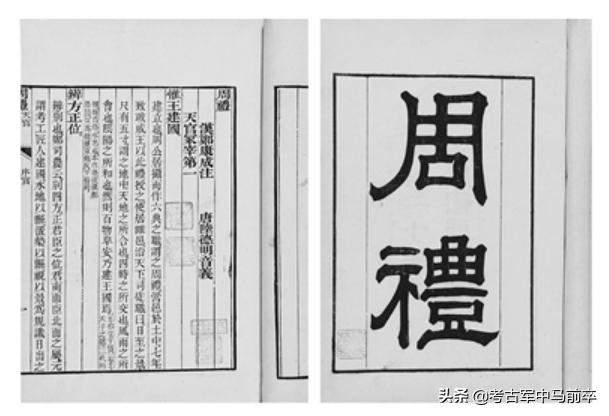 周禮
漢鄭康成注　唐陸德明音義
天官冢宰第一
惟王建國
建立也周公居攝而作六典之職謂之周禮營邑於土中七年
致政成王以此禮授之使居雒邑治天下司徒職曰日至之景
尺有五寸謂之地中天地之所合也四時之所交也風雨之所
會也陰陽之所和也然則百物阜安乃建王國焉
辨方正位
辨別也鄭司農云別四方正君臣之位君南面臣北面之屬玄
謂考工匠人建國水地以縣置槷以縣視以景爲規識日出之
周禮
天官
序官
一
周禮
头条 @考古军中马前卒